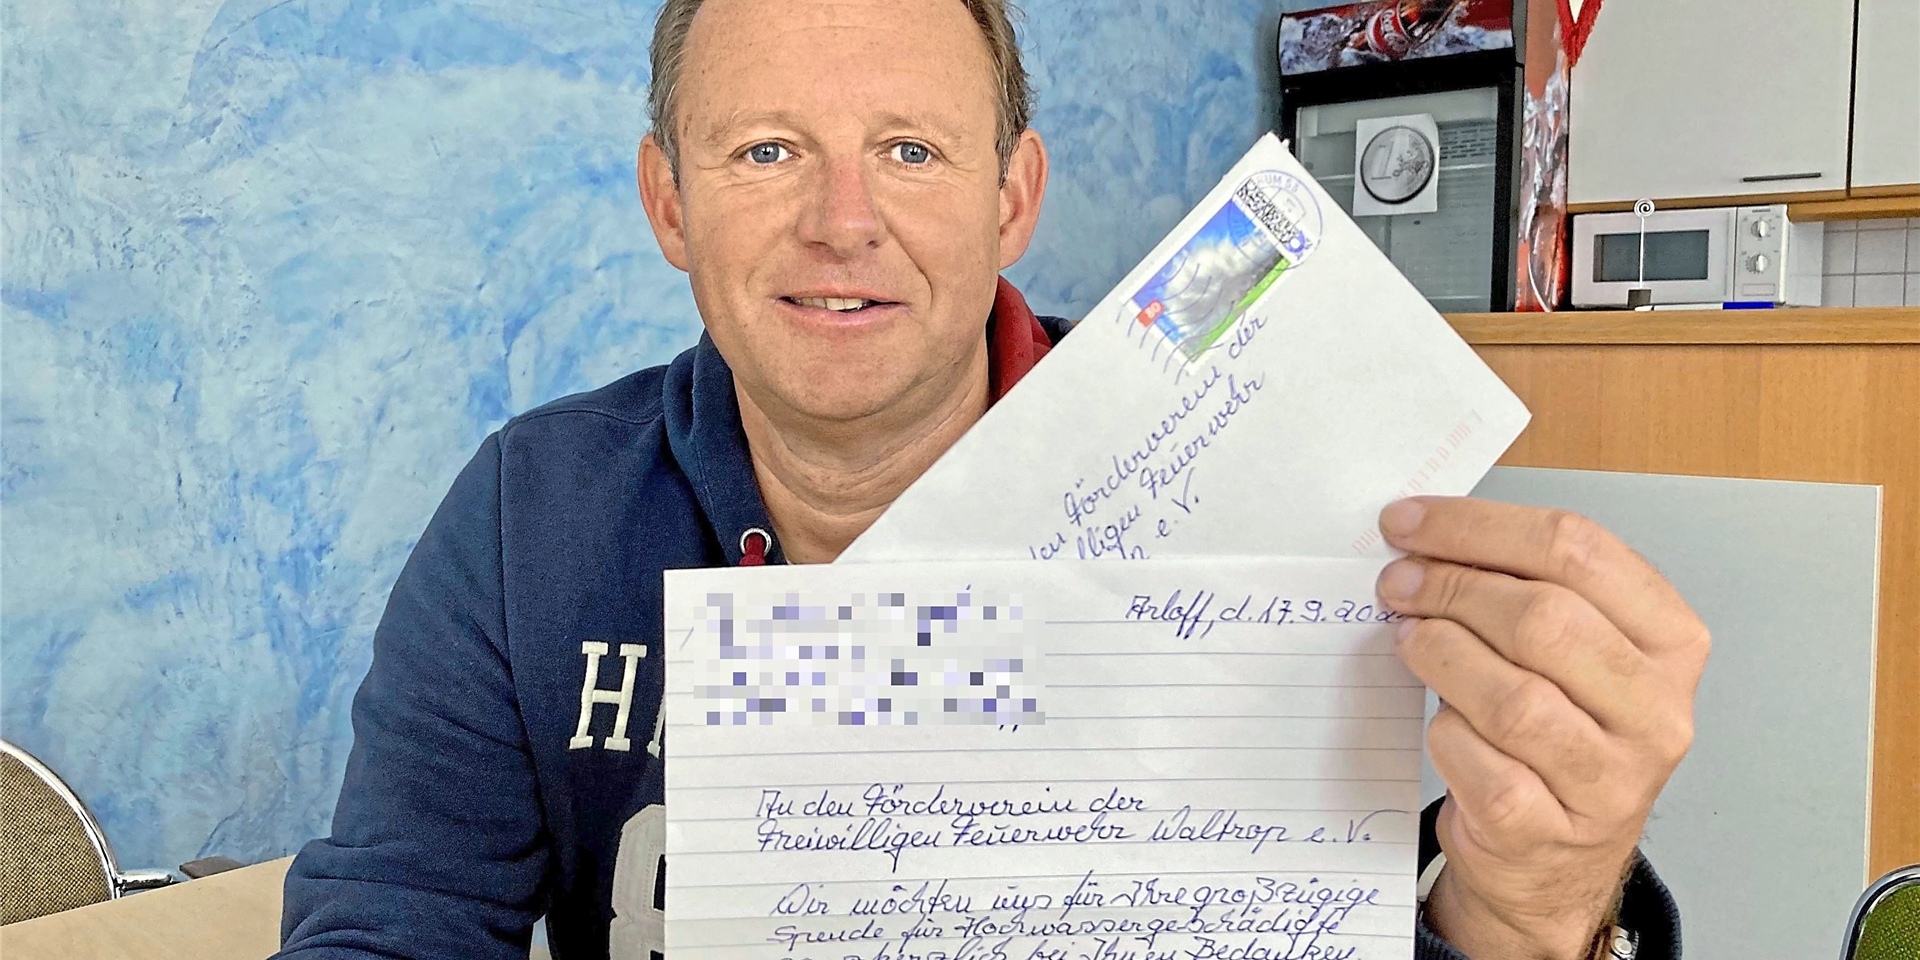 Coca-Cola
1
80
den Förderverein der
illigen Feuerwehr
e. V.
H
Arloff, d. 17.9.202
An den Förderverein der
Freiwilligen Feuerwehr Waltrop e. V.
Wir möchten uns für Ihre großzügige
Spende für Hochwassergeschädigte
herzlich bei Ihnen Bedanken.